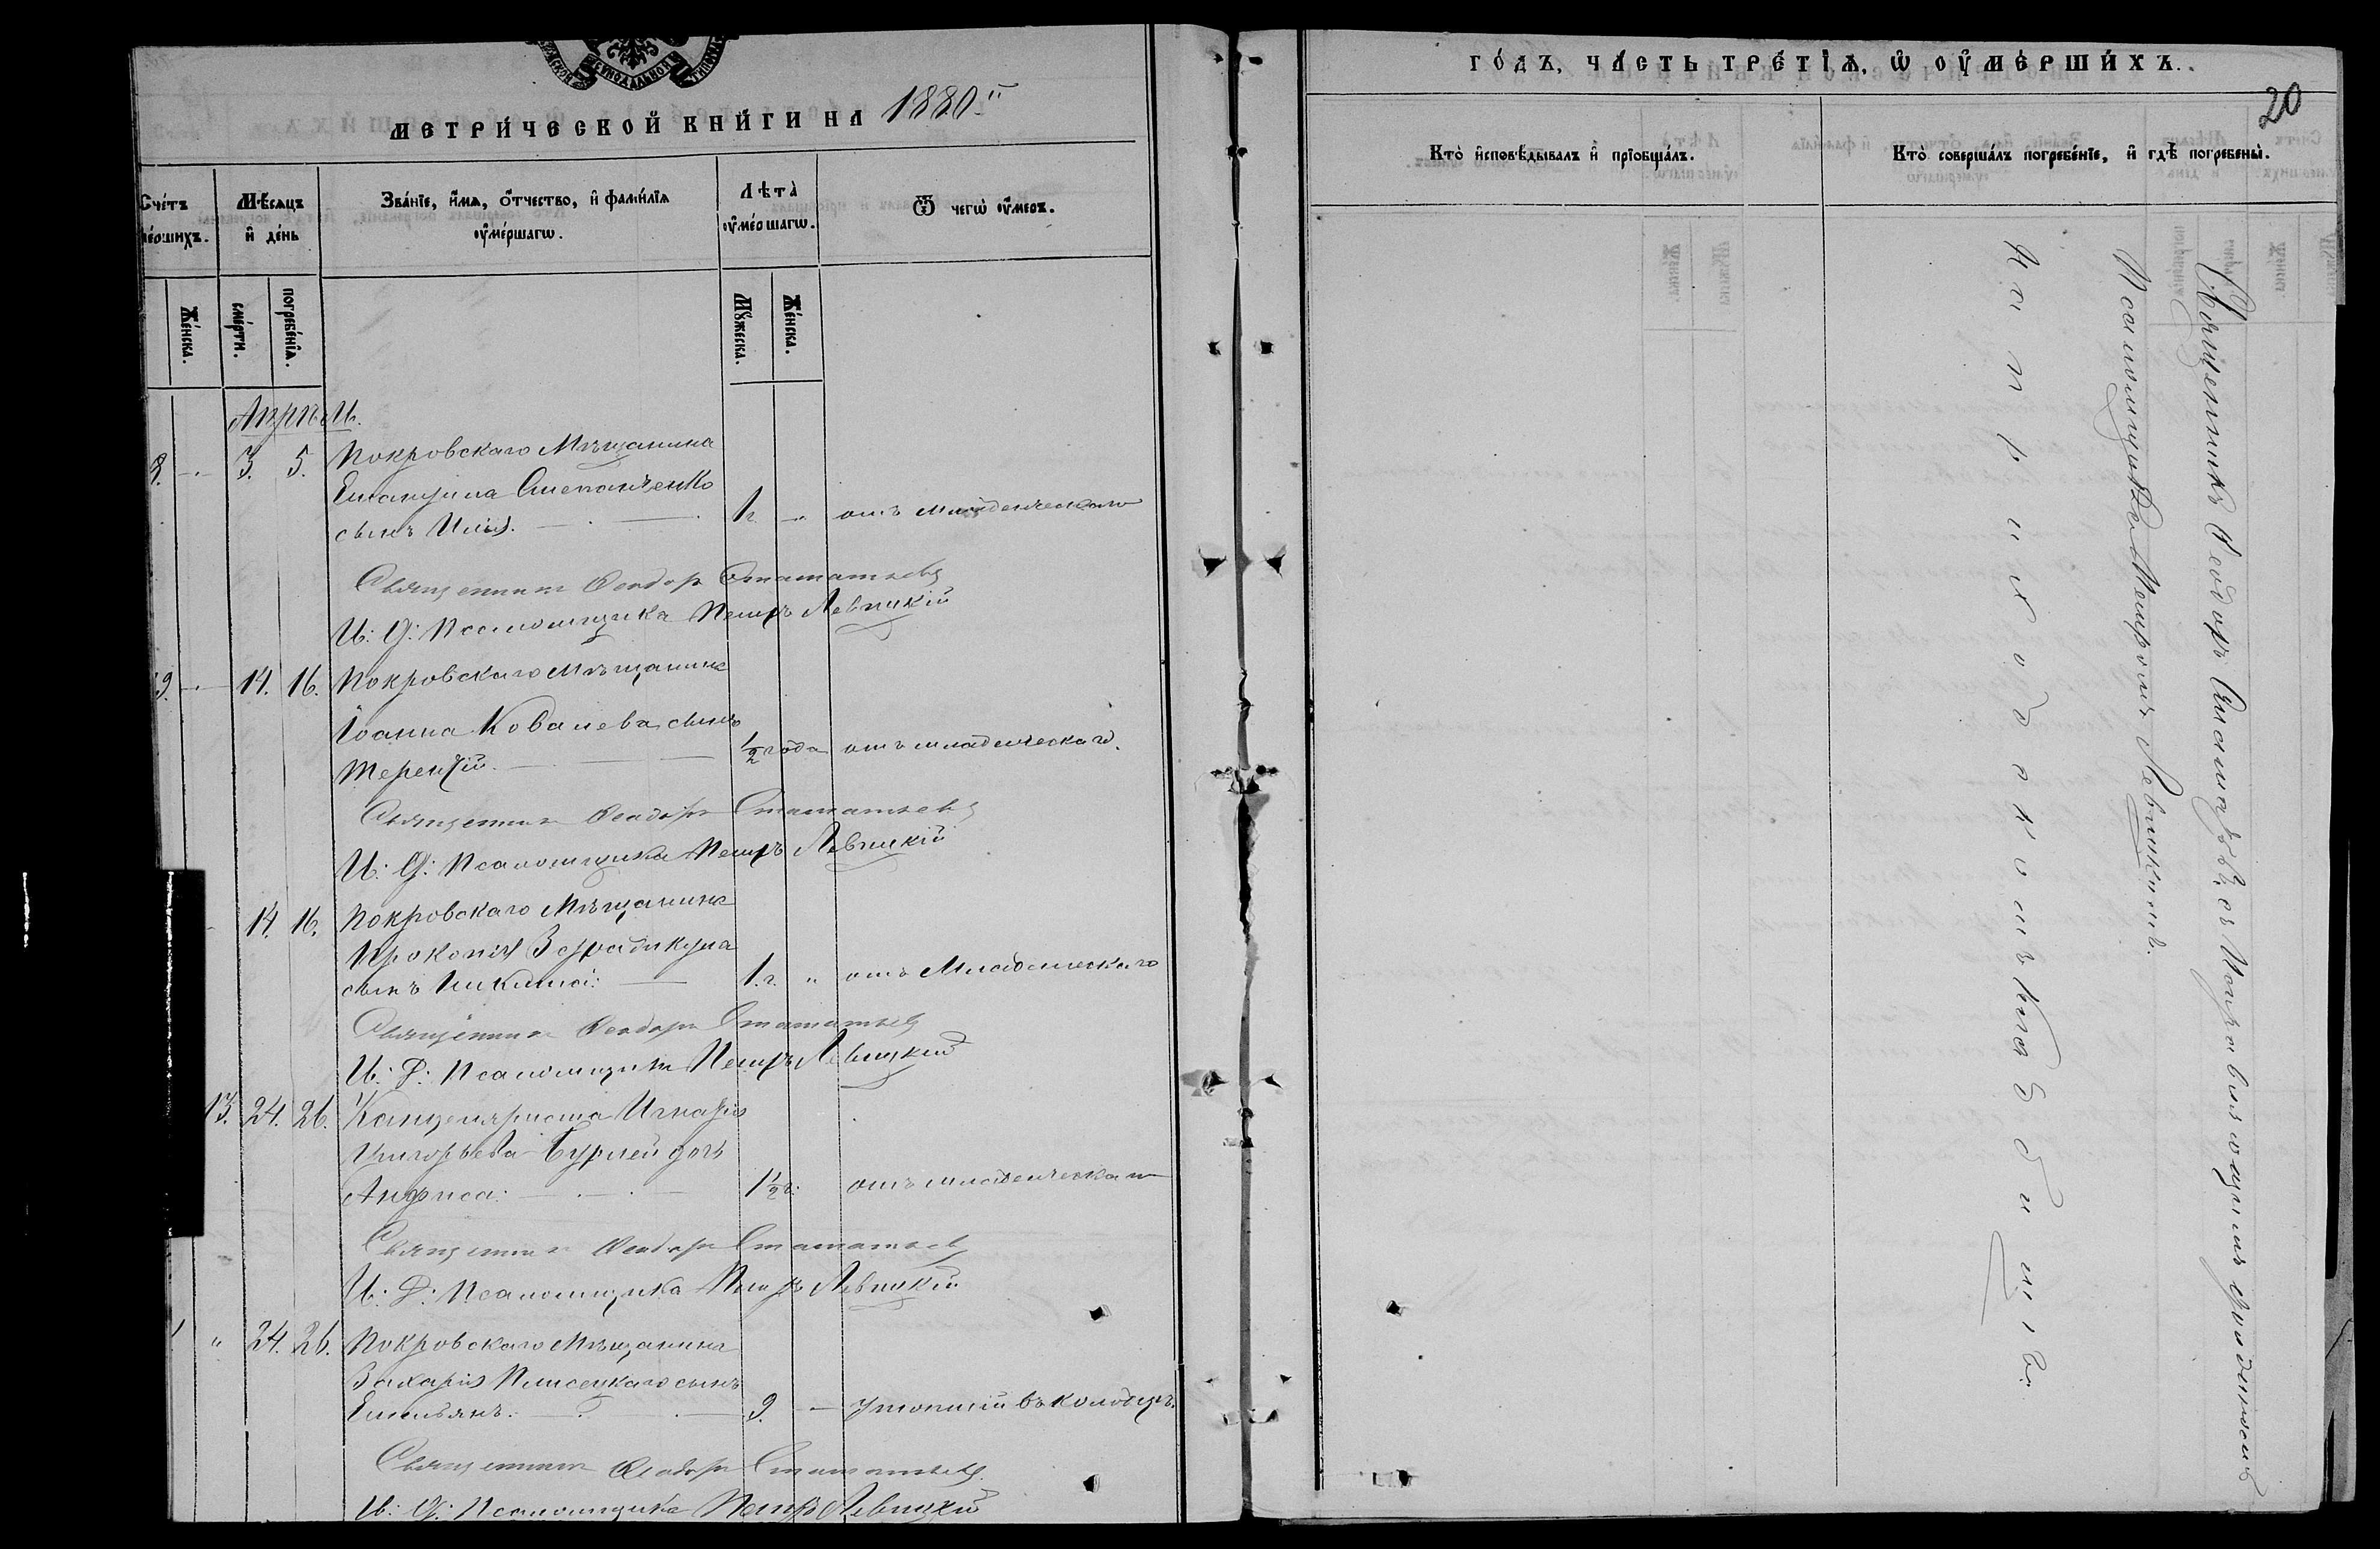 СѴНОДАЛЬНОЙ
МЕТРИ́ЧЕСКОЙ КНИ́ГИ НА 1880.й
Сче́тъ
ме́ршихъ.
Мѣ́сяцъ
и҆ де́нь
Зва́нїе, и҆́мѧ, ѻ҆́тчество, и҆ фамі́лїѧ
ᲂу҆ме́ршагѡ.
Лѣта̀
ᲂу҆ме́ршагѡ.
Ѿ чегѡ̀ ᲂу҆́меръ.
Же́нска.
сме́рти.
погребе́нїѧ.
Мꙋ́жеска.
Же́нска.
Апрѣль.
8. — 3. 5. Покровскаго Мѣщанина
Степанченко
сынъ Илія. 1 г. „ отъ младенческаго
Священникъ Ѳеодоръ Стаматьевъ
И: Д: Псаломщика Петръ Левицкій
9. — 14. 16. Покровскаго Мѣщанина
Іоанна Ковалева сынъ
Терентій. ½ года отъ младенческаго.
Священникъ Ѳеодоръ Стаматьевъ
И: Д: Псаломщика Петръ Левицкій
14. 16. Покровскаго Мѣщанина
Прокопія
сынъ Никита: 1. г. „ отъ Младенческаго
Священникъ Ѳеодоръ Стаматьевъ
И: Д: Псаломщика Петръ Левицкій
13. 24. 26. Канцеляриста Игнатія
Григорьева Бурлей дочь
Анфиса: 1½ г: отъ младенческаго
Священникъ Ѳеодоръ Стаматьевъ
И: Д: Псаломщика Петръ Левицкій
1 „ 24. 26. Покровскаго Мѣщанина
Захарія Плисецкаго сынъ
Емельянъ. 9. — утопшій въ колодцѣ.
Священникъ Ѳеодоръ Стаматьевъ
И: Д: Псаломщика Петръ Левицкій
ГО́ДЪ, ЧА́СТЬ ТРЕ́ТЇѦ, Ѡ҆ ᲂУ҆МЕ́РШИХЪ.
20
Кто̀ и҆сповѣ́дывалъ и҆ прїѡбща́лъ.
Кто̀ соверша́лъ погребе́нїе, и҆ гдѣ̀ погребены̀.
Священникъ Ѳеодоръ Стаматьевъ съ исправляющимъ должность
Псаломщика Петромъ Левицкимъ.
на приходскомъ кладбищѣ.